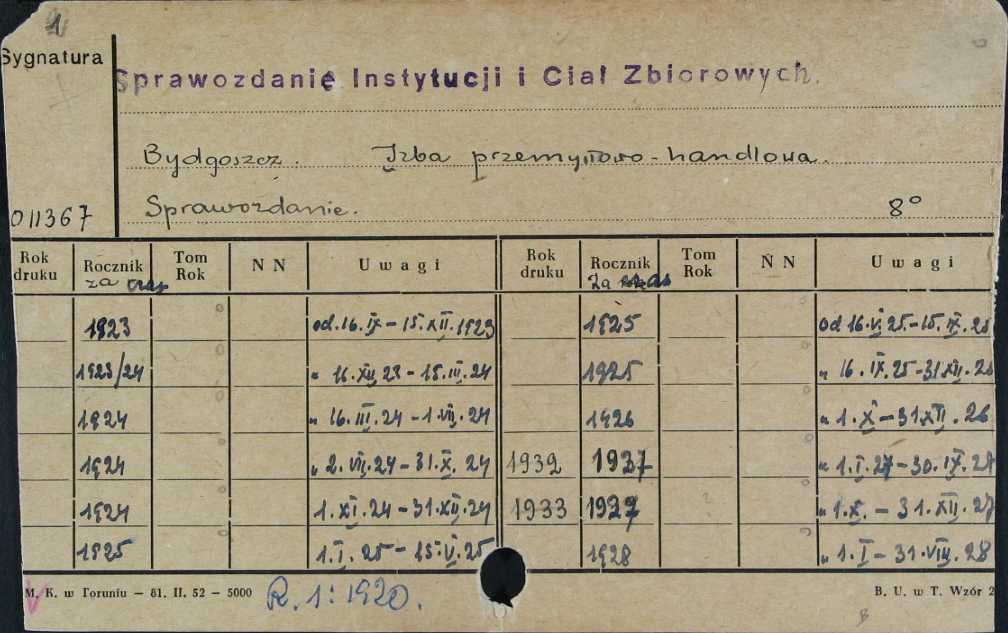 1
Sygnatura
Sprawozdanie Instytucji i Ciał Zbiorowych.
Bydgoszcz. Izba przemysłowo-handlowa.
Sprawozdanie. 8°
011367
Rok druku Rocznik za czas Tom Rok N N Uwagi Rok druku Rocznik za czas Tom Rok N N Uwagi
1923 od. 16. IX – 15. XII. 1923 1925 od 16. VI. 25. – 15. IX. 25
1923/24 „ 16. XII 23 – 15. III. 24 1925 „ 16. IX. 25 – 31. XII. 25
1924 „ 16. III. 24 – 1. VII. 24 1926 „ 1. X – 31. XII. 26
1924 „ 2. VII. 24 – 31. X. 24 1932 1927 „ 1. I. 27 – 30. IX. 27
1924 1. XI. 24 – 31. XII. 24 1933 1927 „ 1. X. – 31. XII. 27
1925 1. I. 25 – 15. V. 25 1928 „ 1. I – 31. VIII. 28
M. K. w Toruniu – 81. II. 52 – 5000 R. 1: 1920. B. U. w T. Wzór 2